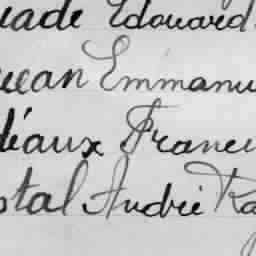 iade Edouard
uean Emmanu
déaux Franci
stal André Ra